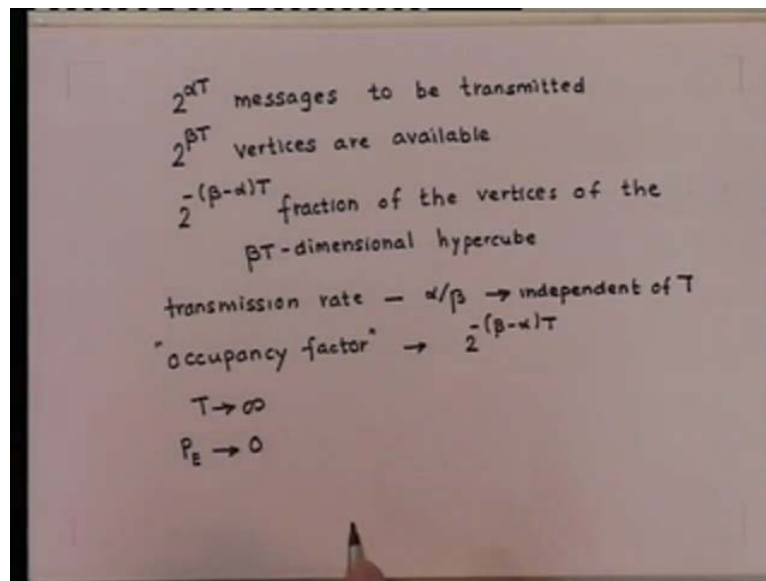 2^αT messages to be transmitted
2^βT vertices are available
2^-(β-α)T fraction of the vertices of the
βT-dimensional hypercube
transmission rate — α/β → independent of T
"occupancy factor" → 2^-(β-α)T
T→∞
P_E → 0